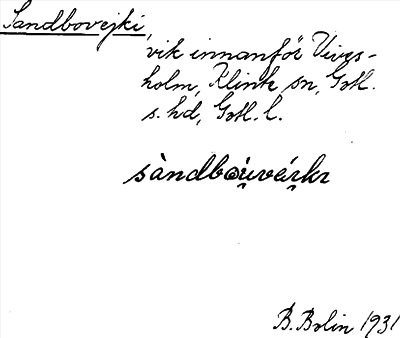 Sandbovejki,
vik innanför Vives-
holm, Klinte sn, Gotl.
s. hd, Gotl. l.
B. Bolin 1931